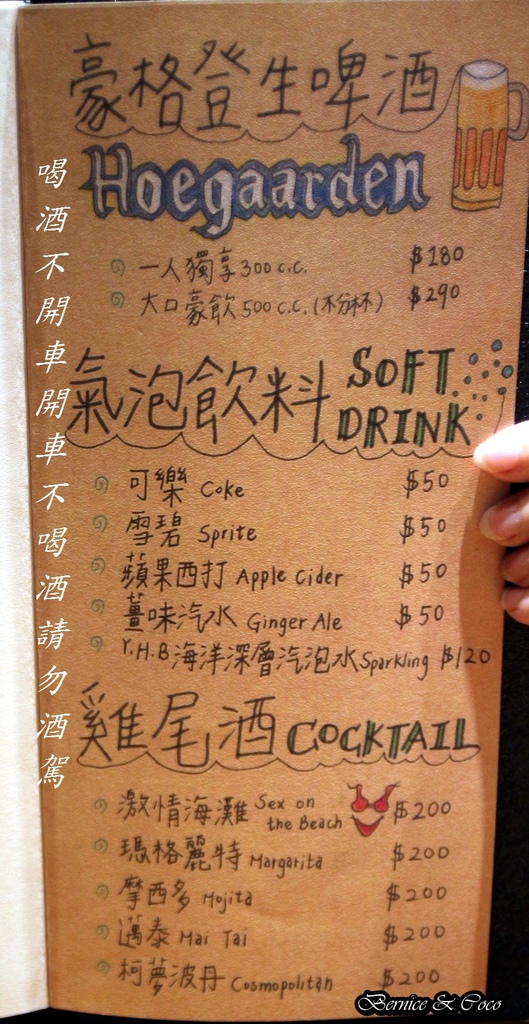 豪格登生啤酒
Hoegaarden
一人獨享300c.c. $180
大口豪飲500c.c.(不分杯) $290
氣泡飲料 SOFT DRINK
可樂 Coke $50
雪碧 Sprite $50
蘋果西打 Apple Cider $50
薑味汽水 Ginger Ale $50
Y.H.B海洋深層汽泡水Sparkling $120
雞尾酒 COCKTAIL
激情海灘 Sex on the Beach $200
瑪格麗特 Margarita $200
摩西多 Mojita $200
邁泰 Mai Tai $200
柯夢波丹 Cosmopolitan $200
喝酒不開車開車不喝酒請勿酒駕
Bernice & Coco